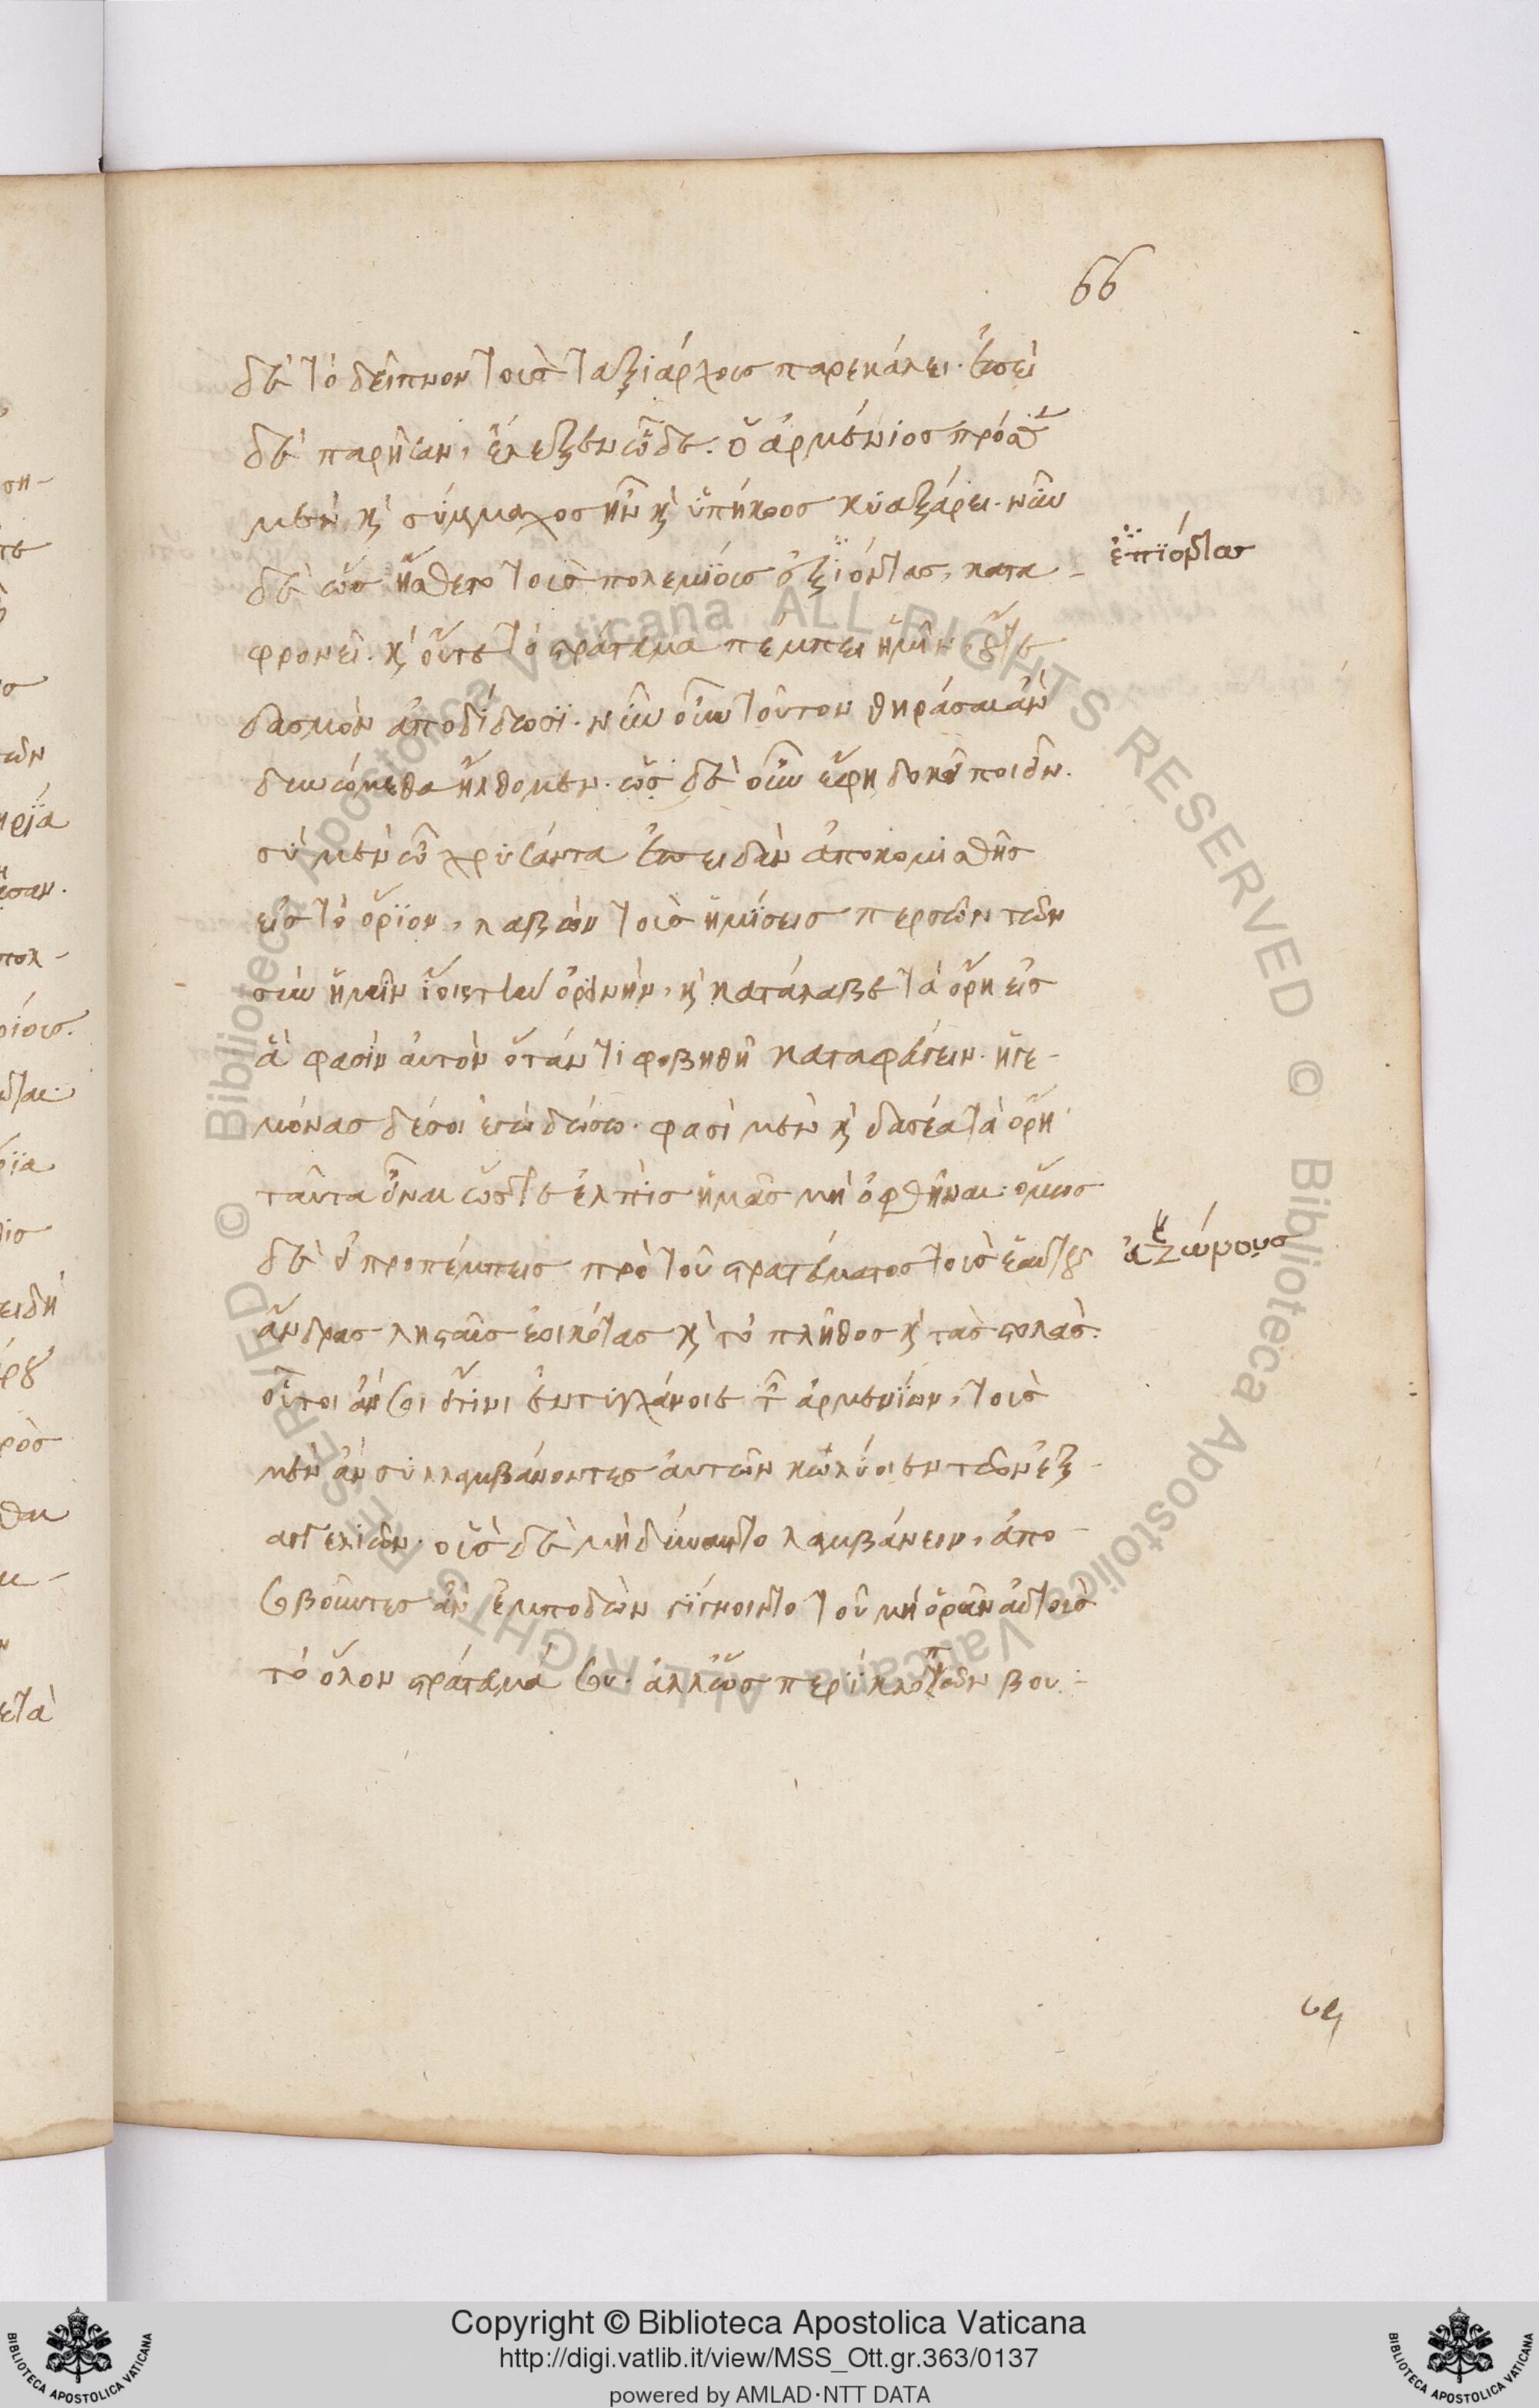 66
δὲ τὸ δεῖπνον τοὺς ταξιάρχους παρεκάλει. ἐπεὶ
δὲ παρῆσαν, ἔλεξεν ὧδε. ὁ ἀρμένιος πρόσθεν
μὲν καὶ σύμμαχος ἦν καὶ ὑπήκοος κυαξάρει. νῦν
δὲ ὡς ᾔσθετο τοὺς πολεμίους ἐξιόντας, κατα-
φρονεῖ. καὶ οὔτε τὸ στράτευμα πέμπει ἡμῖν, οὔτε
δασμὸν ἀποδίδωσϊ. νῦν οὖν τοῦτον θηράσαι ἂν
δυνώμεθα ἤλθομεν. ὡς δὲ οὖν ἔφη δοκεῖ ποιεῖν.
σὺ μὲν ὦ χρυσάντα ἐπειδὰν ἀποκομισθῇς
εἰς τὸ ὅριον, λαβὼν τοὺς ἡμίσεις περσῶν τῶν
σὺν ἡμῖν ἴθι τὴν ὀρεινὴν, καὶ κατάλαβε τὰ ὄρη εἰς
ἃ φασὶν αὐτὸν ὅτάν τι φοβηθῇ καταφεύγειν. ἡγε-
μόνας δέ σοι ἐγὼ δώσω. φασὶ μὲν καὶ δασέα τὰ ὄρη
ταῦτα εἶναι ὥστε ἐλπὶς ἡμᾶς μὴ ὀφθῆναι. ὅμως
δὲ εἰ προπέμπεις πρὸ τοῦ στρατεύματος τοὺς εὐζώνους
ἄνδρας λῃσταῖς ἐοικότας καὶ τὸ πλῆθος καὶ τὰς στολάς.
οὗτοι ἄν σοι εἴ τινι ἐντυγχάνοιεν τῶν ἀρμενίων, τοὺς
μὲν ἂν συλλαμβάνοντες αὐτῶν κωλύοιεν τῶν ἐξ-
αγγελιῶν. οὓς δὲ μὴ δύναιντο λαμβάνειν, ἀπο-
σοβοῦντες ἂν ἐμποδὼν γίγνοιντο τοῦ μὴ ὁρᾶν αὐτοὺς
τὸ ὅλον στράτευμά σου. ἀλλ' ὡς περὶ κλωπῶν βου-
ἐπϊόντας